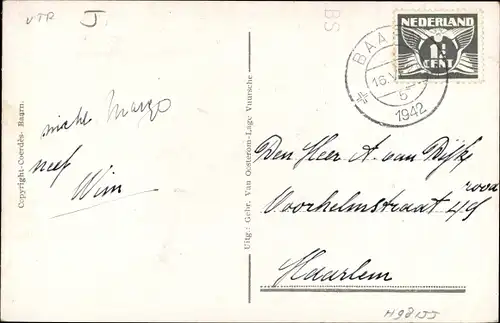 VTP J.
BS
NEDERLAND
1½
CENT
BAA
16.V
5
1942
nicht Margo
neef
Wim
Copyright-Coerdès- Baarn.
Uitg: Gebr. Van Oosterom-Lage Vuursche.
Den Heer A. van Dijk
Voorhelmstraat 49 rood
Haarlem